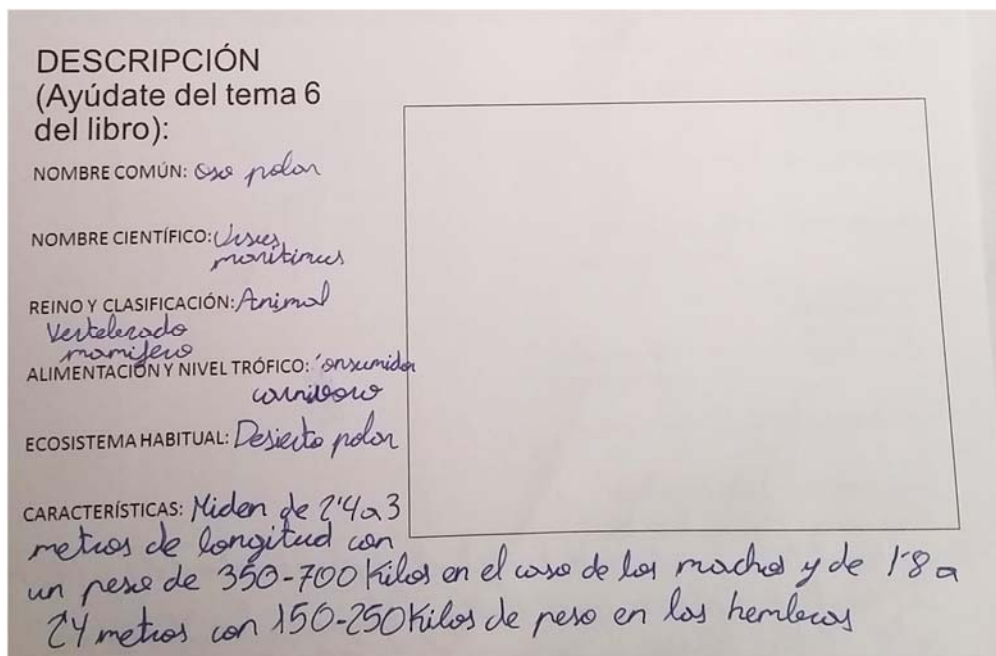 DESCRIPCIÓN
(Ayúdate del tema 6
del libro):
NOMBRE COMÚN: Oso polar
NOMBRE CIENTÍFICO: Ursus
maritimus
REINO Y CLASIFICACIÓN: Animal
Vertebrado
mamífero
ALIMENTACIÓN Y NIVEL TRÓFICO: Consumidor
carnivoro
ECOSISTEMA HABITUAL: Desierto polar
CARACTERÍSTICAS: Miden de 2'4 a 3
metros de longitud con
un peso de 350-700 Kilos en el caso de los machos y de 1'8 a
2'4 metros con 150-250 Kilos de peso en las hembras